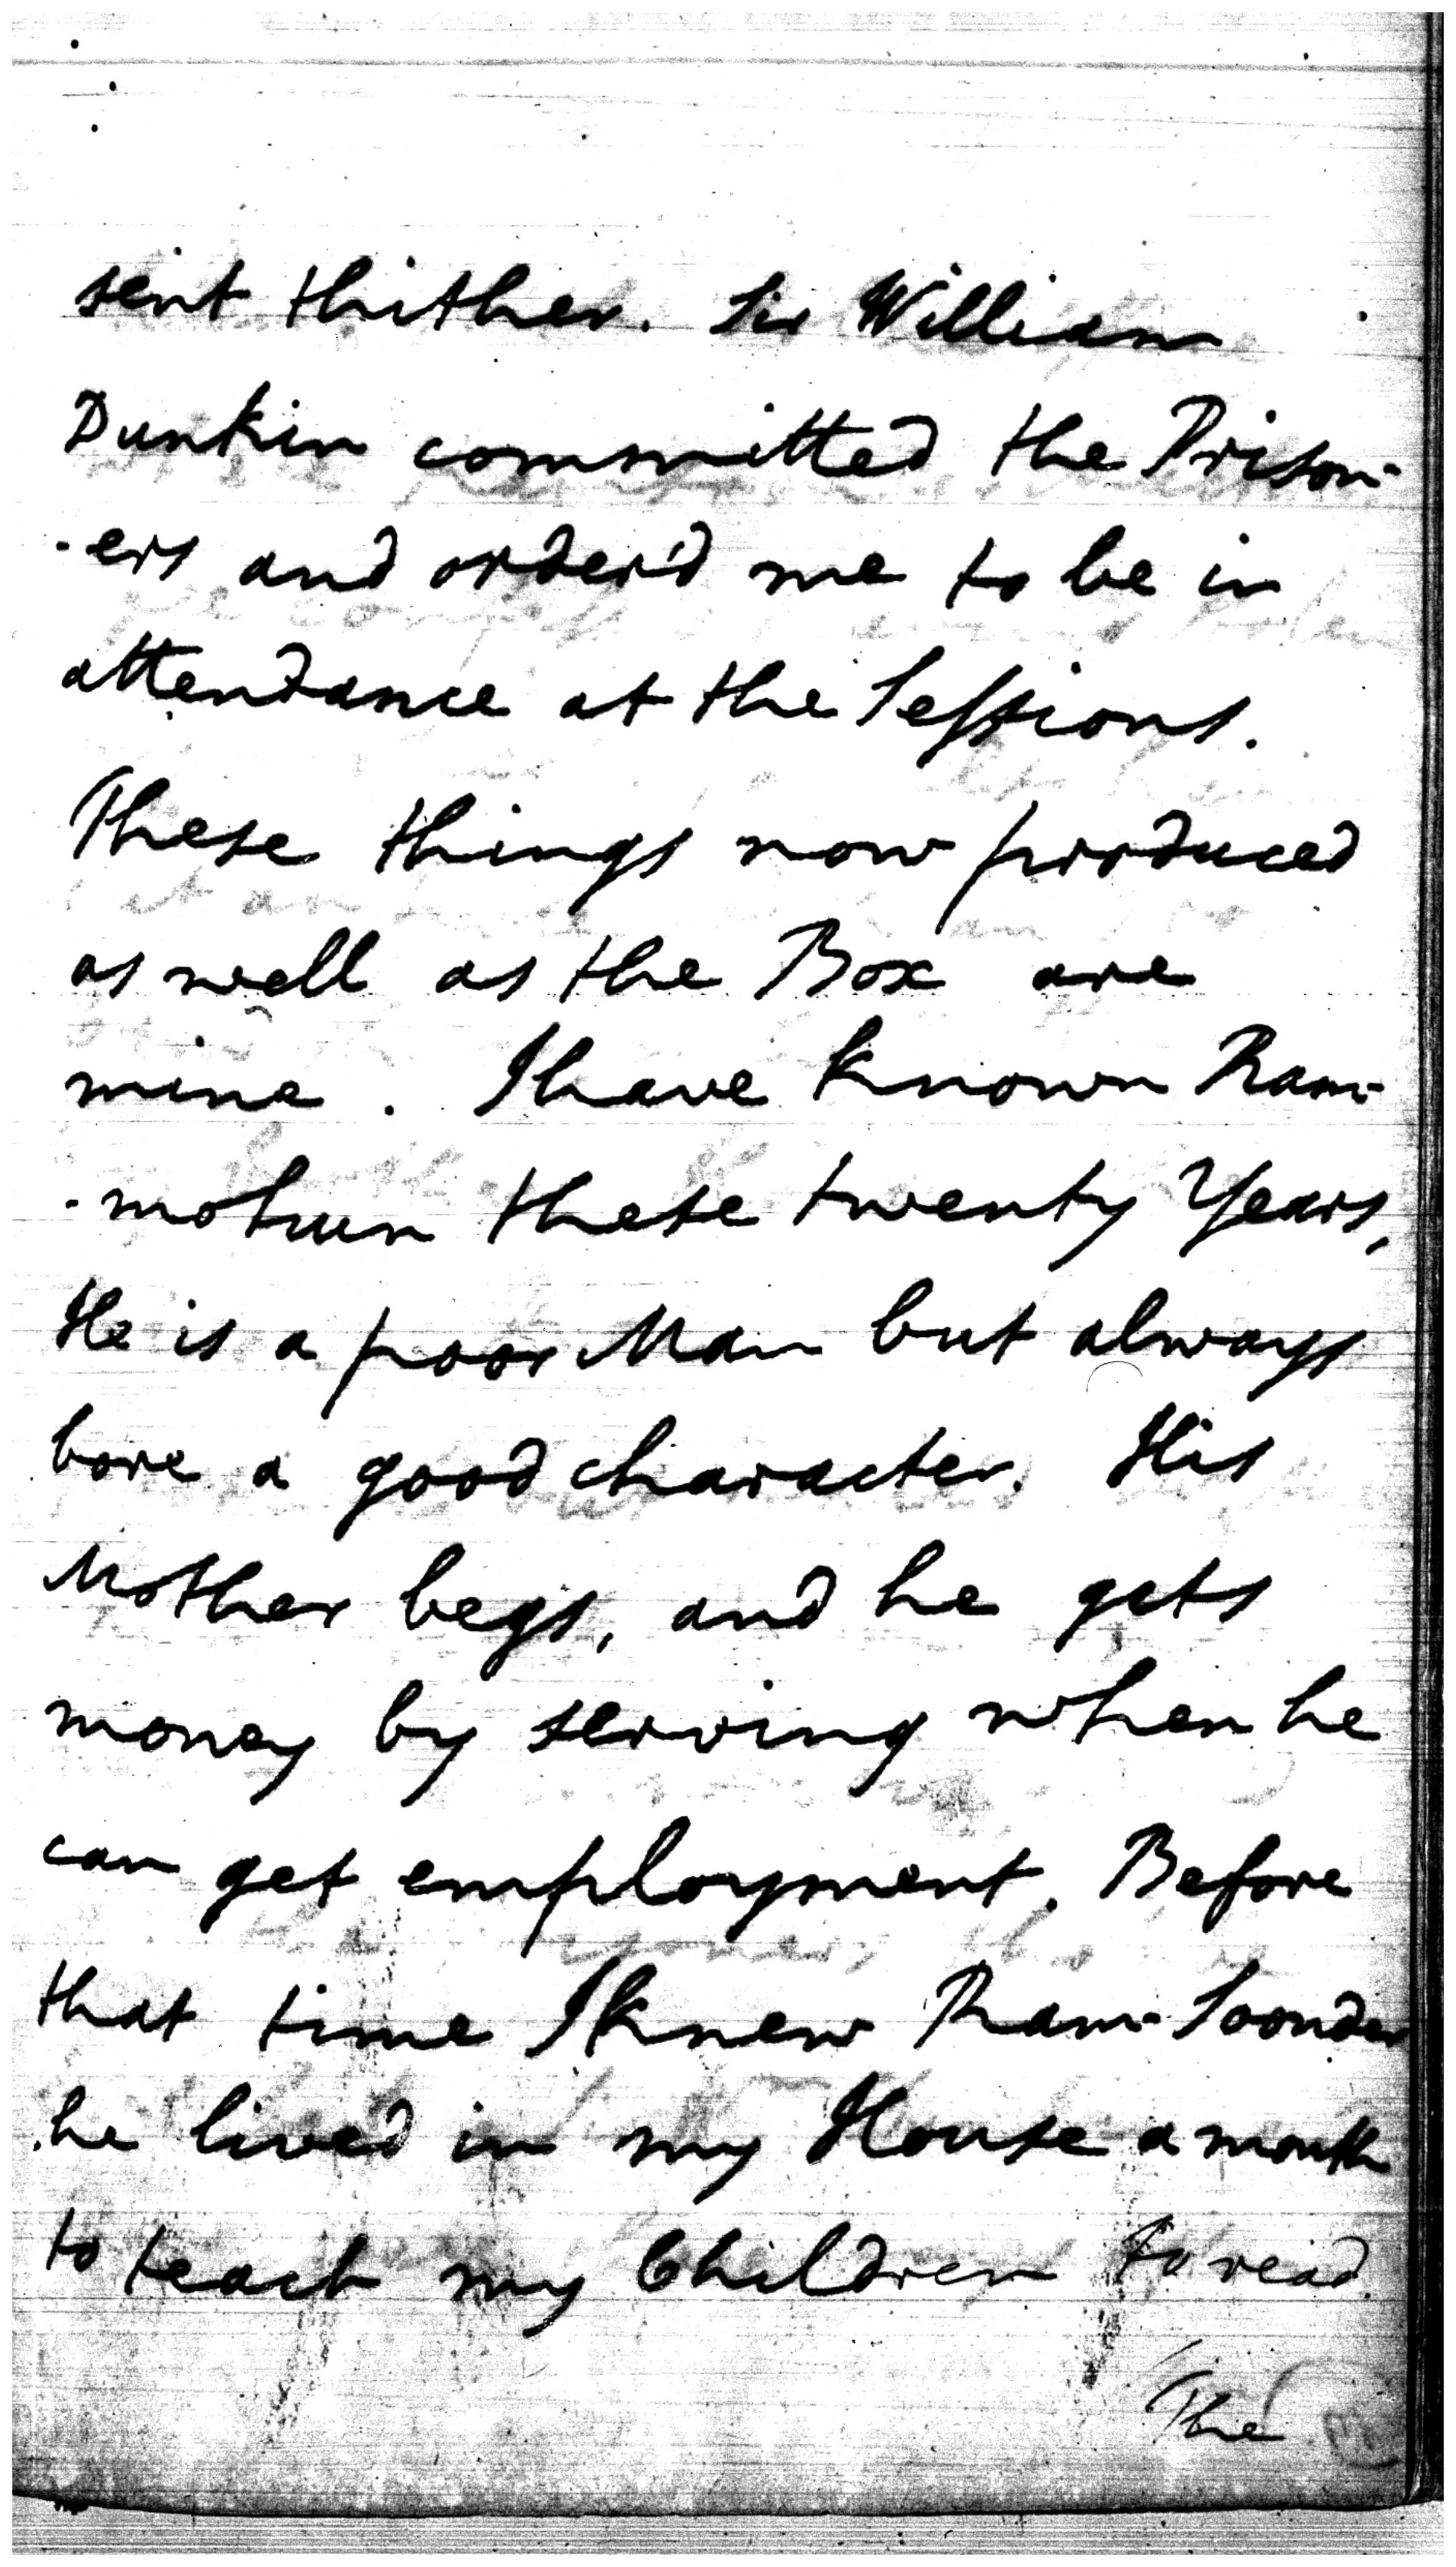 sent thither. Sir William
Dunkin committed the Prison-
-ers and order'd me to be in
attendance at the Sessions.
These things now produced
as well as the Box are
mine. I have known Ram-
-mohun these twenty Years,
He is a poor Man but always
bore a good character. His
Mother begs, and he gets
money by serving when he
can get employment. Before
that time I knew Ram-Soonder
he lived in my House a month
to teach my Children to read.
The